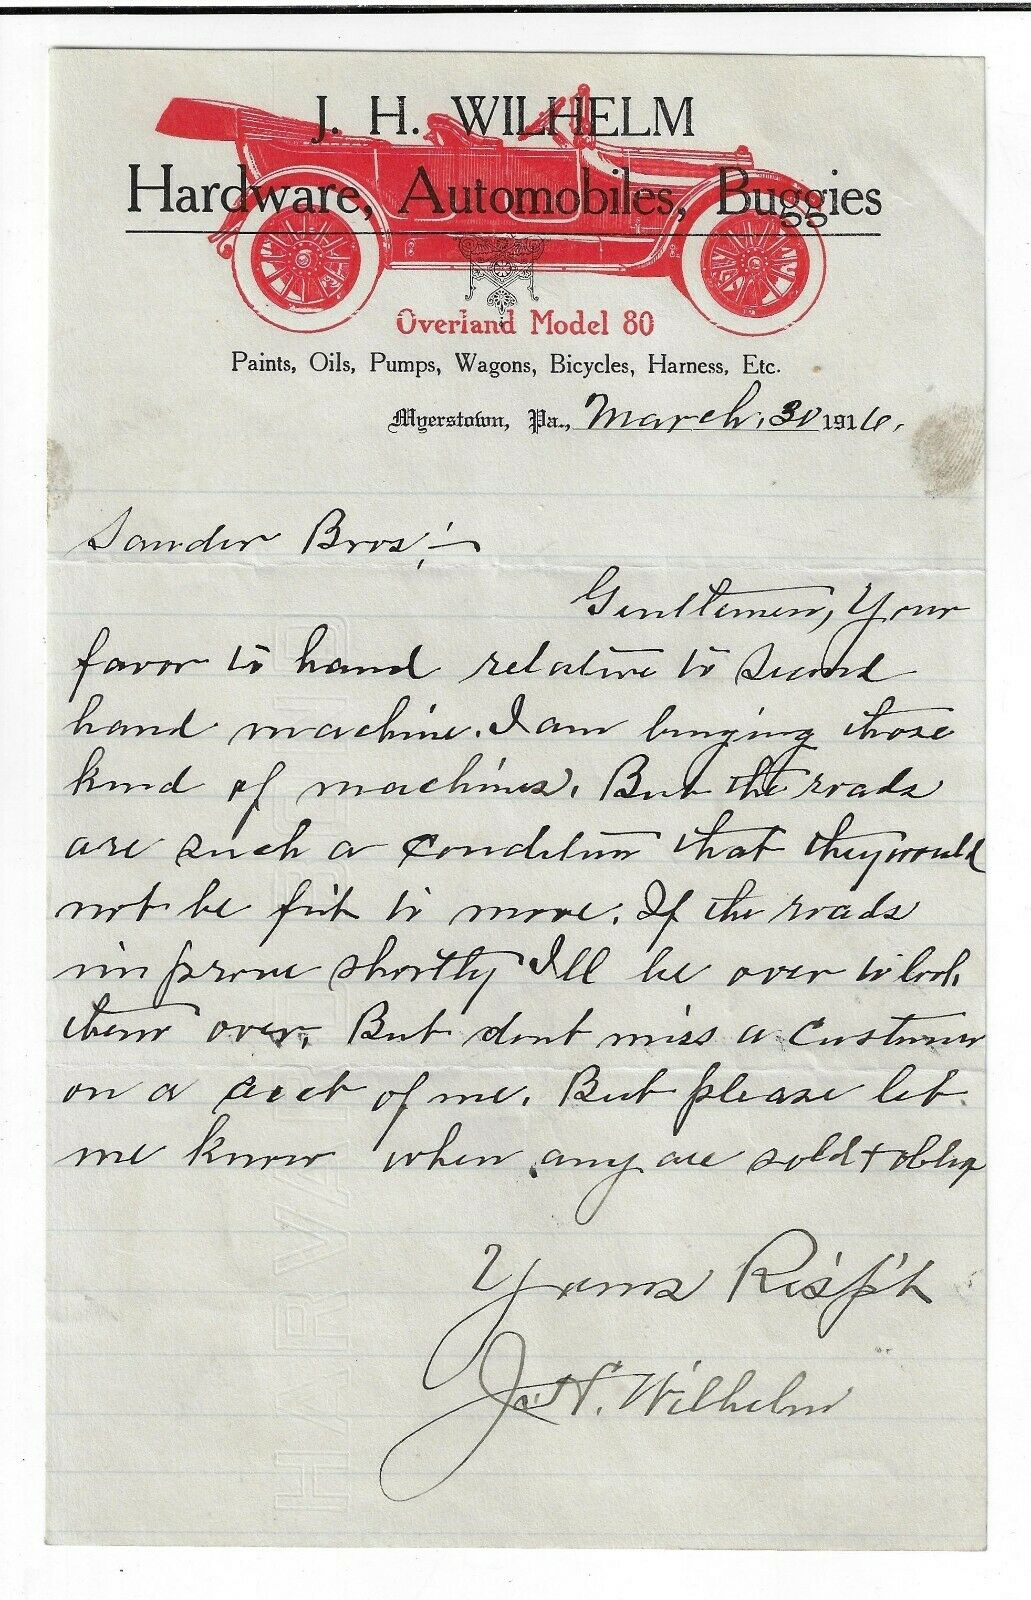 J. H. WILHELM
Hardware, Automobiles, Buggies
Overland Model 80
Paints, Oils, Pumps, Wagons, Bicycles, Harness, Etc.
Myerstown, Pa., March. 30 1916.
Sauder Bros;—
Gentlemen, Your
favor to hand relative to second
hand machine. I am buying those
kind of machines. But the roads
are such a condition that they would
not be fit to move. If the roads
improve shortly I'll be over to look
them over. But dont miss a customer
on a acct of me. But please let
me know when any are sold + oblig
Yours Resp't
J. H. Wilhelm
HARVARD BOND